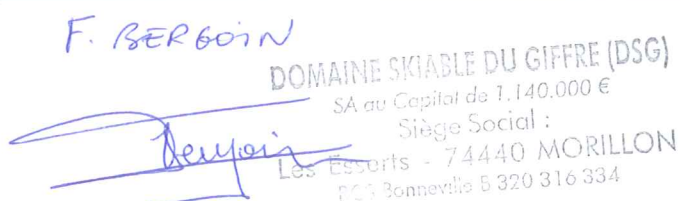 F. BERGOIN
DOMAINE SKIABLE DU GIFFRE (DSG)
SA au Capital de 1.140.000 €
Siège Social :
Les Esserts - 74440 MORILLON
RCS Bonneville B 320 316 334
Bergoin